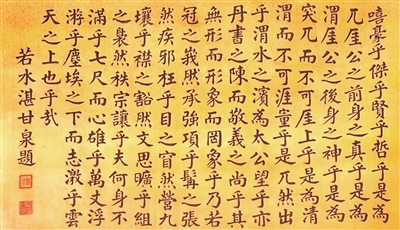 嘻豪乎傑乎賢乎哲乎是為
兀厓公之前身之真乎是為
渭厓公之後身之神乎是為
突兀而不可厓上乎是為清
渭而不可涯量乎是兀然出
乎渭水之濱為太公望乎亦
丹書之陳而敬義之尚乎其
無形而形象而罔象乎乃若
冠之峩然承強項乎之張
然疾邪枉乎目之窅然營九
壤乎襟之豁然文思曠乎組
之褎然秩宗讓乎夫何身不
滿乎七尺而心雄乎萬丈浮
游乎塵埃之下而志激乎雲
天之上也乎哉
若水湛甘泉題